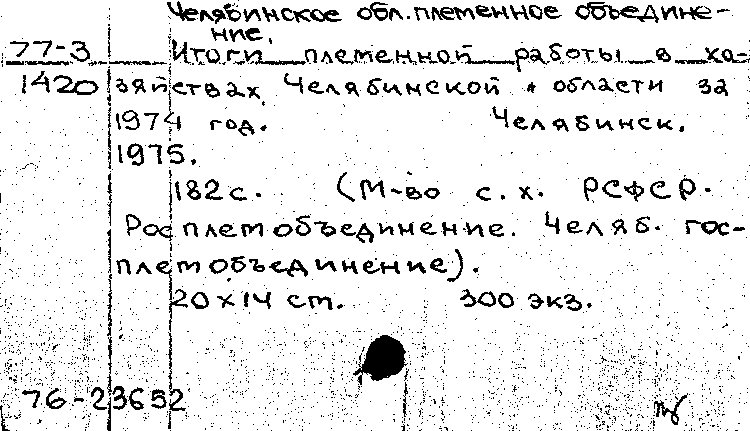 Челябинское обл. племенное объедине-
ние.
77-3 Итоги племенной работы в хо-
1420 зяйствах Челябинской области за
1974 год. Челябинск.
1975.
182 с. (М-во с.х. РСФСР.
Росплемобъединение. Челяб. гос-
племобъединение).
20х14 cm. 300 экз.
76-23652